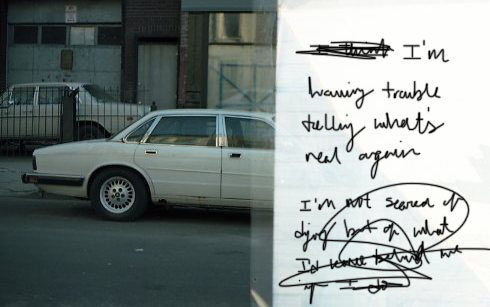 I think I'm
having trouble
telling what's
real again
I'm not scared of
dying but of what
I'd leave behind me
if I do